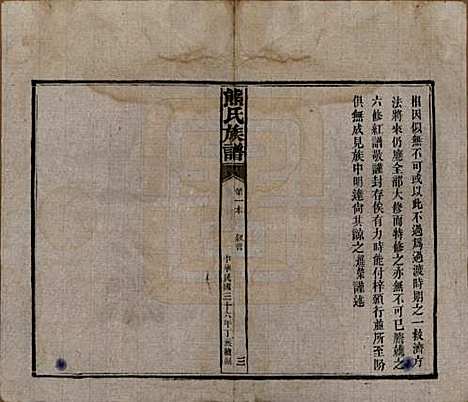 相因似無不可或以此不過為過渡時期之一救濟方
法將來仍應全部大修而特修之亦無不可已謄藏之
六修紅譜敬謹封存俟有力時能付梓頒行並所至盼
俱無成見族中明達尚其諒之 謹述
熊氏族譜
第一本
叙言
三
中華民國三十六年丁亥續